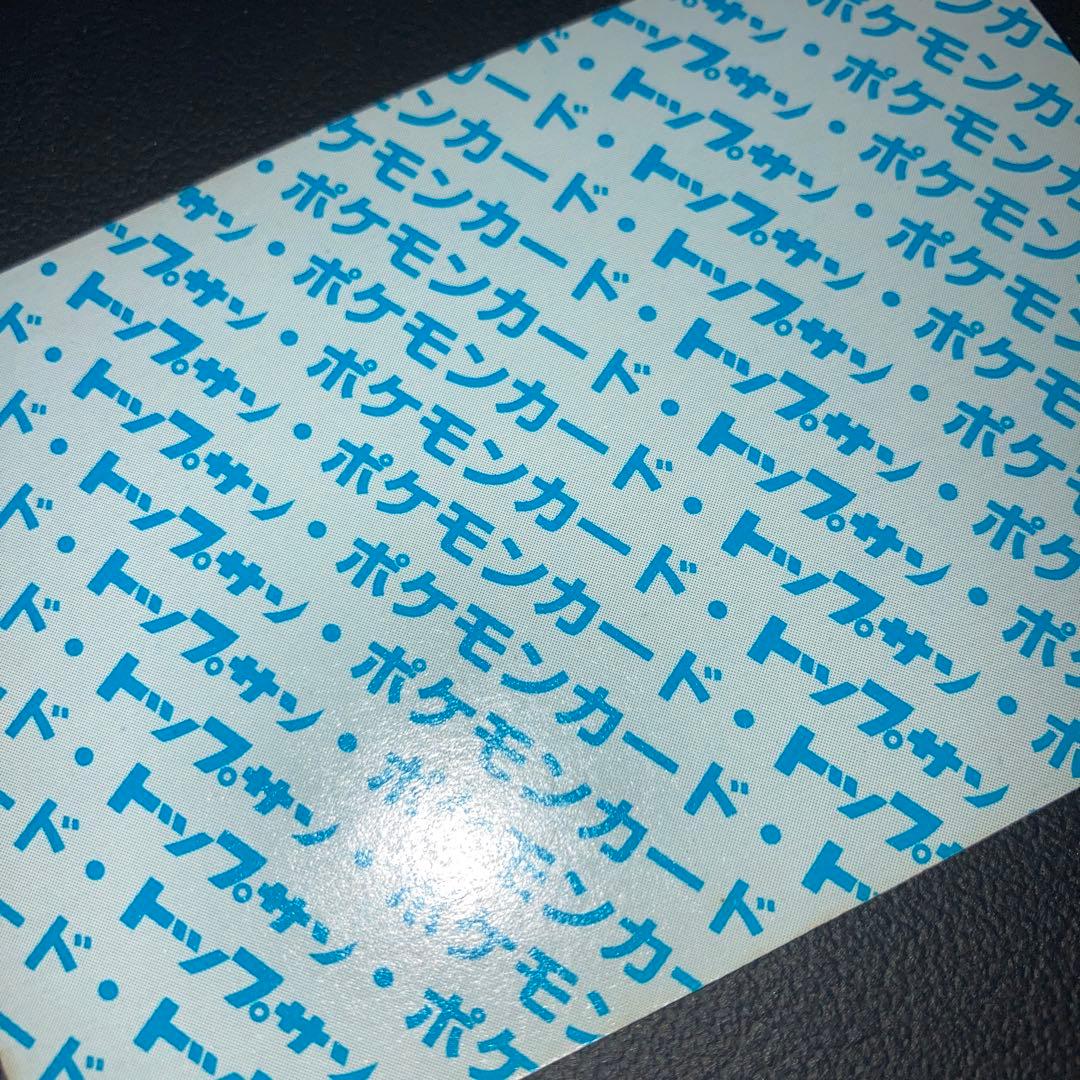 ンカー
ポケモンカ
プサン・ポケモンカ
トップサン・ポケモン
ド・トップサン・ポケモン
カード・トップサン・ポケモ
ンカード・トップサン・ポケモ
ケモンカード・トップサン・ポケ
・ポケモンカード・トップサン・ポケ
サン・ポケモンカード・トップサン・ポ
ップサン・ポケモンカード・トップサン
・トップサン・ポケモンカード・トップ
ド・トップサン・ポケモンカード・ト
ド・トップサン・ポケモンカード
ド・トップサン・ポケモンカー
ド・トップサン・ポケモン
ド・トップサン・ポケ
ード・トップサン
ード・トップ
ド